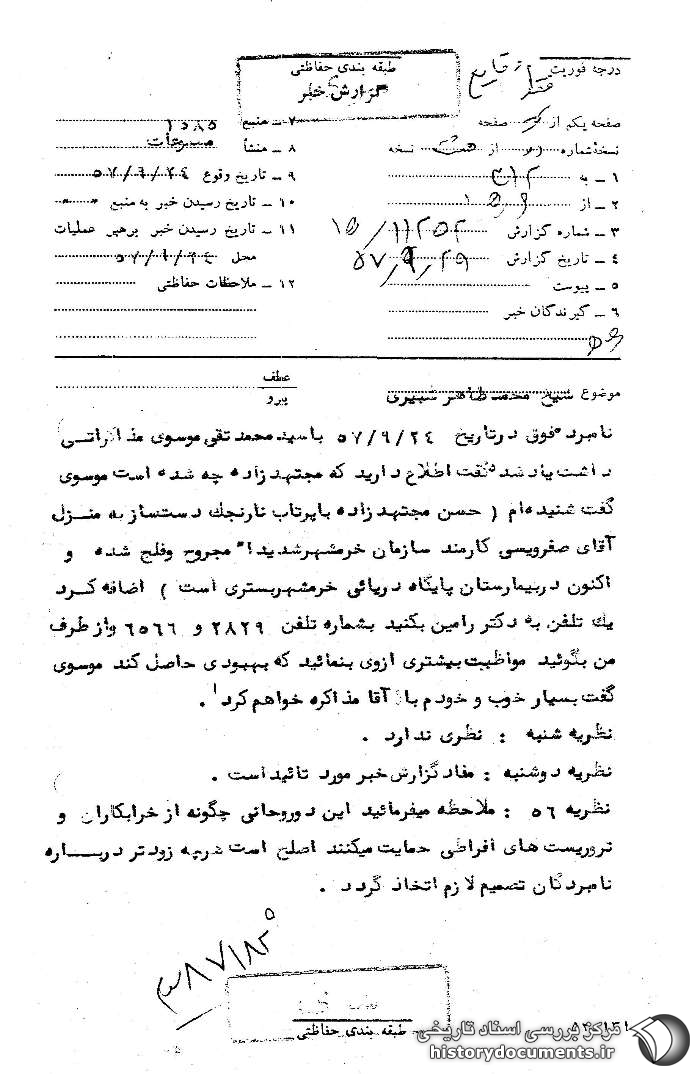 درجه فوریت
طبقه بندی حفاظتی
گزارش خبر
صفحه یکم از صفحه
نسخه شماره از نسخه
۱ ـ به ۳۱۲
۲ ـ از
۳ ـ شماره گزارش
۴ ـ تاریخ گزارش
۵ ـ پیوست
۶ ـ گیرندگان خبر
۷ ـ منبع
۸ ـ منشأ مسموعات
۹ ـ تاریخ وقوع ۵۷/۶/۲۴
۱۰ ـ تاریخ رسیدن خبر به منبع
۱۱ ـ تاریخ رسیدن خبر برهبر عملیات
محل
۱۲ ـ ملاحظات حفاظتی
موضوع شیخ محمدطاهر شبیری
عطف
پیرو
نامبرده فوق درتاریخ ۵۷/۶/۲۴ باسیدمحمدتقی موسوی مذاکراتی
داشت یادشده گفت اطلاع دارید که مجتهدزاده چه شده است موسوی
گفت شنیده‌ام ( حسن مجتهدزاده باپرتاب نارنجک دست‌ساز به منزل
آقای صفرویسی کارمند سازمان خرمشهرشدیداً مجروح وفلج شده و
اکنون دربیمارستان پایگاه دریائی خرمشهربستری است ) اضافه کرد
یک تلفن به دکتر رامین بکنید بشماره تلفن ۲۸۲۹ و ۶۵۶۶ واز طرف
من بگوئید مواظبت بیشتری ازوی بنمائید که بهبودی حاصل کند موسوی
گفت بسیار خوب و خودم با آقا مذاکره خواهم کرد .
نظریه شنبه : نظری ندارد .
نظریه دوشنبه : مفادگزارش خبر مورد تائیداست .
نظریه ۵۶ : ملاحظه میفرمائید این دوروحانی چگونه از خرابکاران و
تروریست های افراطی حمایت میکنند اصلح است هرچه زودتر دربـــاره
نامبردگان تصمیم لازم اتخاذ گردد .
طبقه بندی حفاظتی
مرکز بررسی اسناد تاریخی
historydocuments.ir